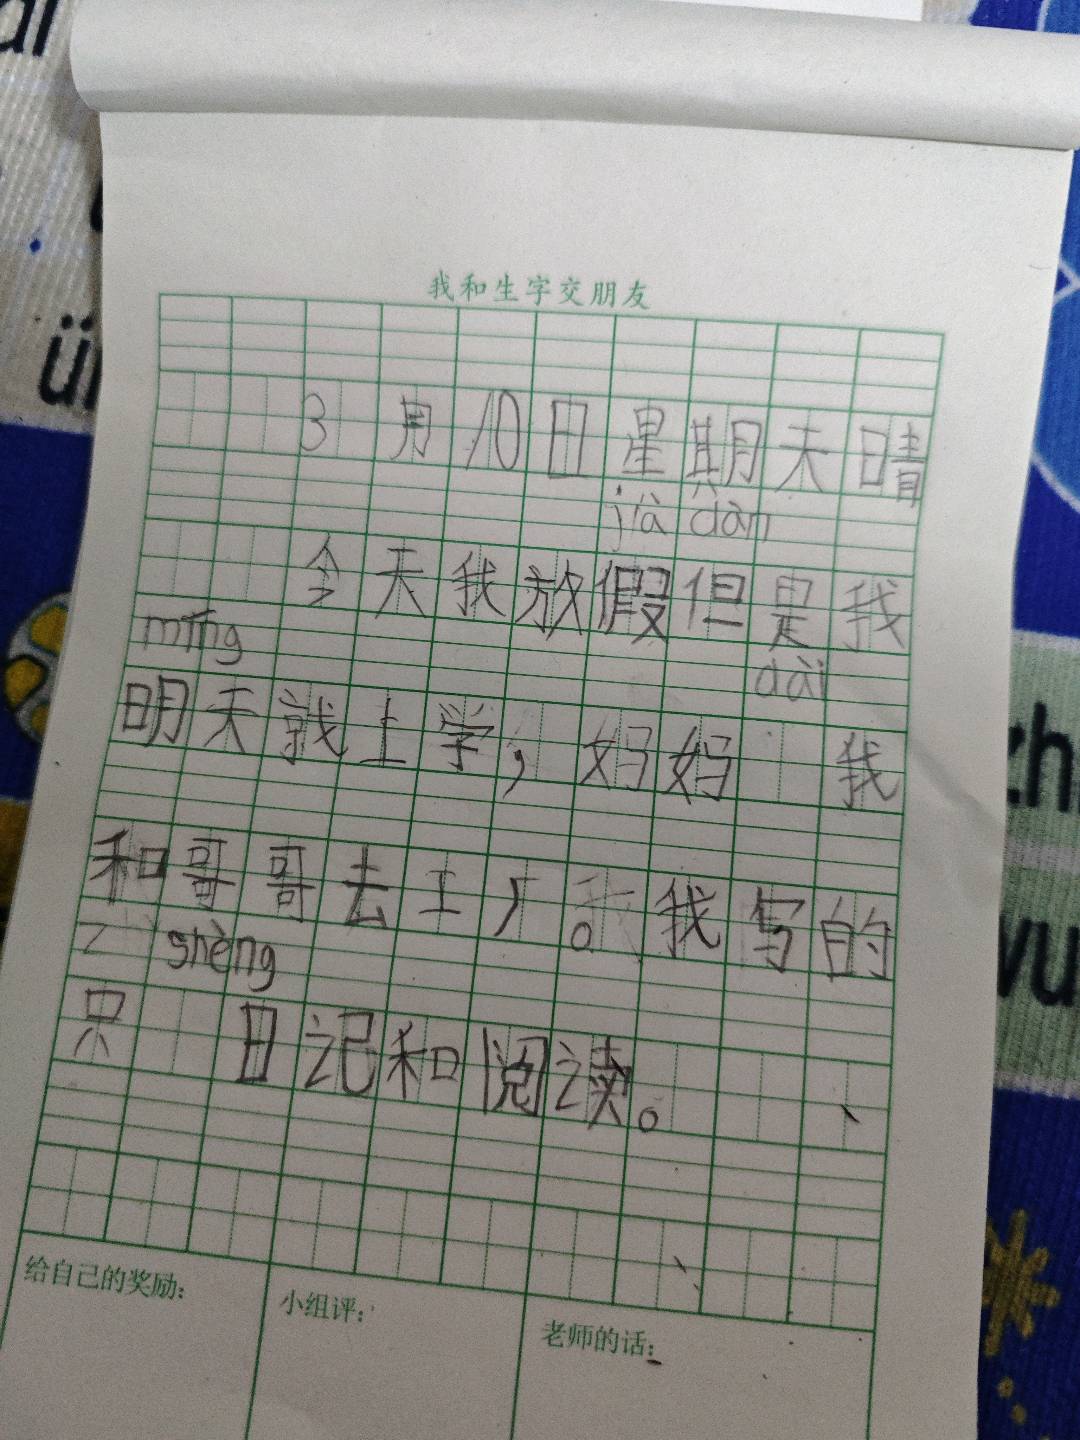 我和生字交朋友
3月10日星期天晴
jià dàn
今天我放假但是我
míng
dài
明天就上学，妈妈 我
和哥哥去工厂。我写的
shèng
只 日记和阅读。
给自己的奖励：
小组评：
老师的话：
ü
zh
wu